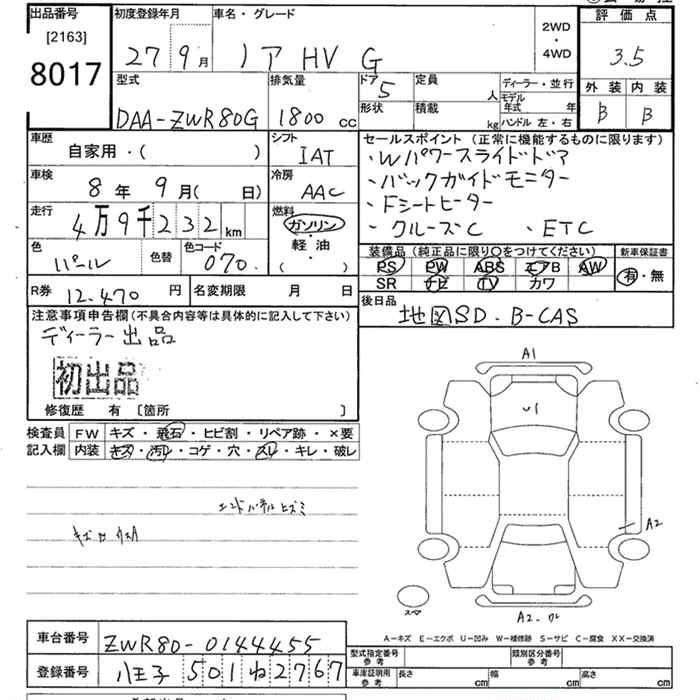 出品番号
[2163]
8017
初度登録年月
27年9月
車名・グレード
ノア HV G
2WD
・
4WD
評価点
3.5
外装 内装
B B
型式
DAA-ZWR80G
排気量
1800 cc
ドア
5
形状
定員
人
積載
kg
ディーラー・並行
モデル年式 年
ハンドル 左・右
車歴
自家用・( )
シフト
IAT
車検
8年9月( 日)
冷房
AAC
走行
4万9千232km
燃料
ガソリン
・
軽油
・
( )
色
パール
色替
色コード
070.
R券
12.470円
名変期限 月 日
セールスポイント(正常に機能するものに限ります)
・Wパワースライドドア
・バックガイドモニター
・Fシートヒーター
・クルーズC ・ETC
装備品(純正品に限り○をつけてください)
PS PW ABS エアB AW
SR ナビ TV カワ
新車保証書
有・無
後日品
地図SD. B-CAS
注意事項申告欄(不具合内容等は具体的に記入して下さい)
ディーラー出品
初出品
修復歴 有 [箇所 ]
検査員記入欄
FW キズ・飛石・ヒビ割・リペア跡・×要
内装 キズ・汚レ・コゲ・穴・スレ・キレ・破レ
エンドパネルヒズミ
A1
U1
A2
スペア
A2.
A-キズ E-エクボ U-凹み W-補修跡 S-サビ C-腐食 XX-交換済
車台番号
ZWR80-0144455
登録番号
八王子 501 ね 2767
型式指定番号
参考
類別区分番号
参考
車庫証明用
参考
長さ cm
幅 cm
高さ cm